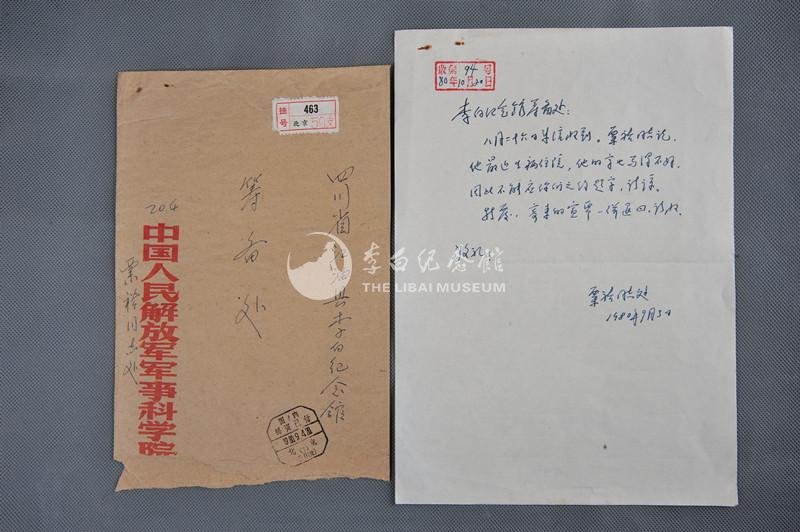 挂号
463
北京
四川省江油县李白纪念馆
筹备处
204
中国人民解放军军事科学院
粟裕同志处
1980.9.4.20
北京
收第94号
80年10月20日
李白纪念馆筹备处：
八月二十六日来信收到。粟裕同志说，
他最近生病住院，他的字也写得不好，
因此不能应你们之约题字，请谅。
寄来的宣纸一併退回，请收。
致礼
粟裕同志处
1980年9月3日
李白纪念馆
THE LIBAI MUSEUM